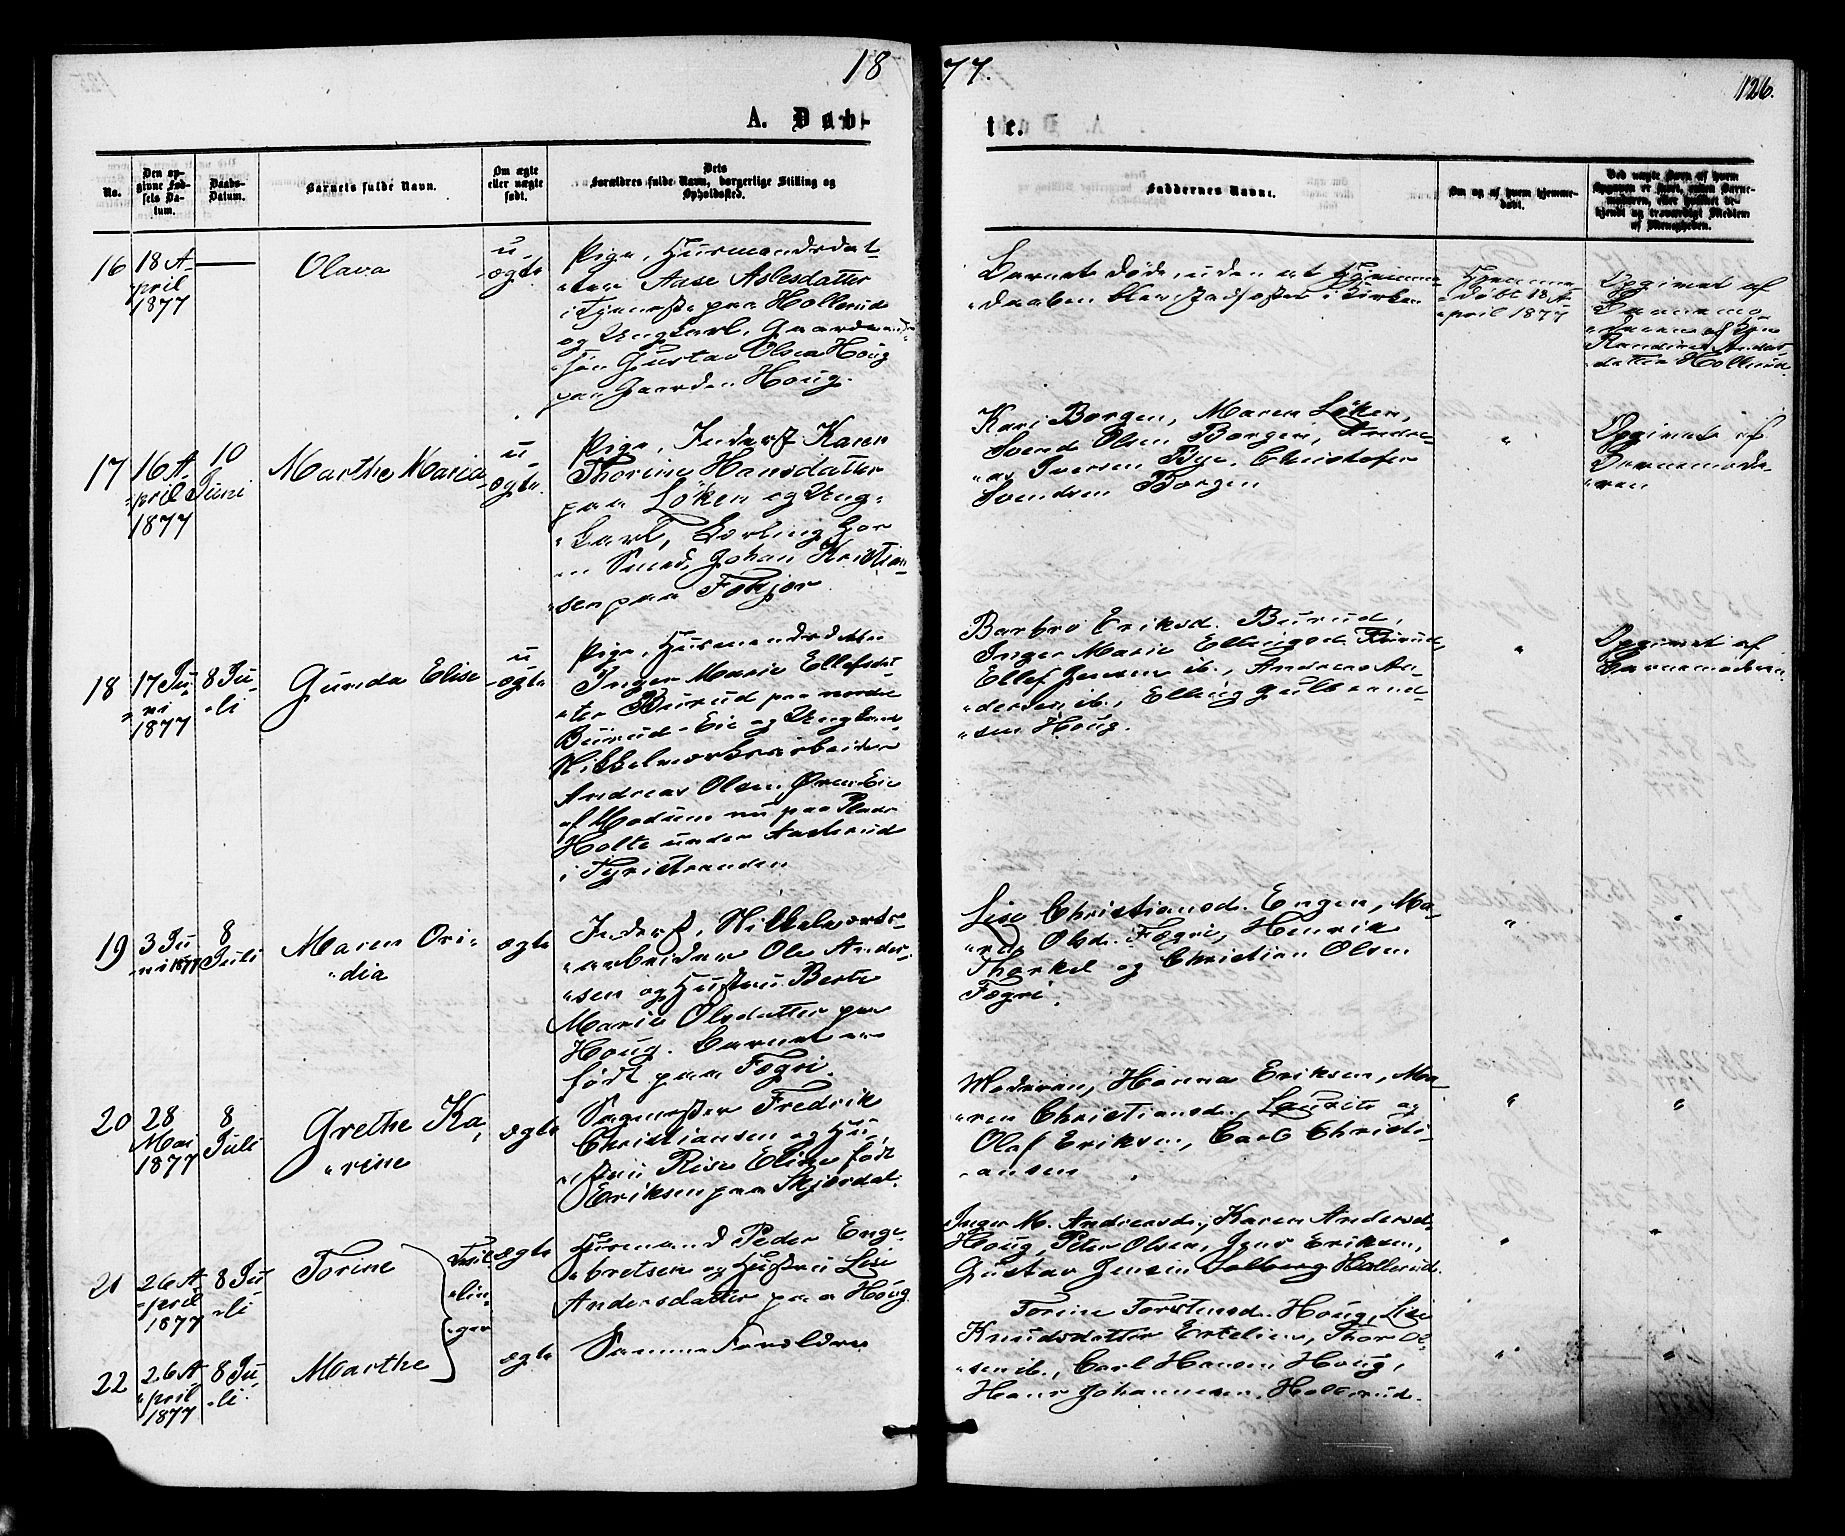 18
77.
126.
A. Døb-
te.
No.
Den op-
givne Fød-
sels Da-
tum.
Daabs-
Datum.
Barnets fulde Navn.
Om ægte
eller uægte
født.
Dets
Forældres fulde Navn, borgerlige Stilling og
Opholdssted.
Faddernes Navne.
Om og af hvem hjemme-
døbt.
Ved uægte Børn af hvem
Opgaven er skeet, enten Barne-
moderen, eller hvilket be-
kjendt og troværdigt Medlem
af Menigheden.
16
18 A-
pril
1877
Olava
u-
ægte
Pige, Husmandsdat-
ter Aase Aslesdatter
i Tjeneste paa Hollerud
og Ungkarl, Gaardmands-
søn Gustav Olsen Houg
paa Gaarden Houg.
Barnet døde, uden at Hjemme-
daaben blev stadfæstet i Kirken
Hjemme-
døbt 18 A-
pril 1877
Opgivet af
Barnemo-
deren af Kone
Randine Anders-
datter Hollerud.
17
16 A-
pril
1877
10
Juni
Marthe Maria
u-
ægte
Pige, Inderst Karen
Thorine Hansdatter
paa Løken og Ung-
karl, Lærling hos
en Smed, Johan Kristian-
sen paa Foskjør
Kari Borgen, Maren Løken,
Svend Olsen Borgen, Andre-
as Iversen Bye, Christofer
Svendsen Borgen
"
Opgivet af
Barnemode-
ren
18
17 Ju-
ni
1877
8 Ju-
li
Gunda Elise
u-
ægte
Pige, Husmandsdatter
Inger Marie Ellefsdat-
ter Burud paa nordre
Burud-Eie og Ungkarl
Nikkelværksarbeider
Andreas Olsen Øren-Eie
af Modum nu paa Pladsen
Holte under Aaslerud
i Tyristranden
Barbro Eriksd. Burud,
Inger Marie Ellingsd. Burud,
Ellef Jensen ib., Andreas An-
dersen ib., Elling Gulbrand-
sen Houg.
"
Opgivet af
Barnemoderen.
19
3 Ju-
ni 1877
8
Juli
Maren Ori-
dia
ægte
Inderst, Nikkelværks-
arbeider Ole Ander-
sen og Hustru Berte
Marie Olsdatter paa
Houg. Barnet er
født paa Fægri.
Lise Christiansd. Engen, Ma-
ren Olsd. Fægri, Henrik
Thorkel og Christian Olsen
Fægri.
"
"
20
28
Mai
1877
8
Juli
Grethe Ka-
rine
ægte
Sagmester Fredrik
Christiansen og Hu-
stru Rise Eline født
Eriksen paa Skjærdal.
Moderen, Hanna Eriksen, Ma-
ren Christiansd., Laurits og
Olaf Eriksen, Carl Christi-
ansen
"
"
21
26 A-
pril
1877
8 Ju-
li
Torine
Tvil-
lin-
ger
ægte
Husmand Peder Enge-
bretsen og Hustru Lise
Andersdatter paa Houg
Inger M. Andreasd., Karen Andersd.
Houg, Peter Olsen, Jens Eriksen,
Gustav Jensen Solberg Hollerud.
"
"
22
26 A-
pril
1877
8 Ju-
li
Marthe
ægte
Samme Forældre
Torine Torstensd. Houg, Lise
Knudsdatter Ertelien, Thor Ol-
sen ib., Carl Hansen Houg,
Hans Johannesen Hollerud.
"
"